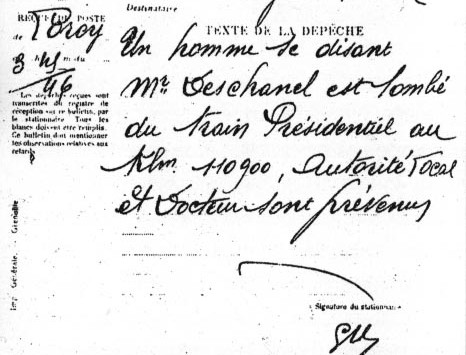 Destinataire
REÇU DE POSTE
TEXTE DE LA DÉPÊCHE
de Toroy
Un homme se disant
3 h 45 m du
Mr Deschanel est tombé
26
du train Présidentiel au
Klm. 110900, Autorité Local
et Docteur sont prévenus
Les dépêches reçues sont
transcrites du registre de
réception sur ce bulletin, par
le stationnaire. Tous les
blancs doivent être remplis.
Ce bulletin doit mentionner
les observations relatives aux
retards.
Imp. Générale. - Grenoble
Signature du stationnaire